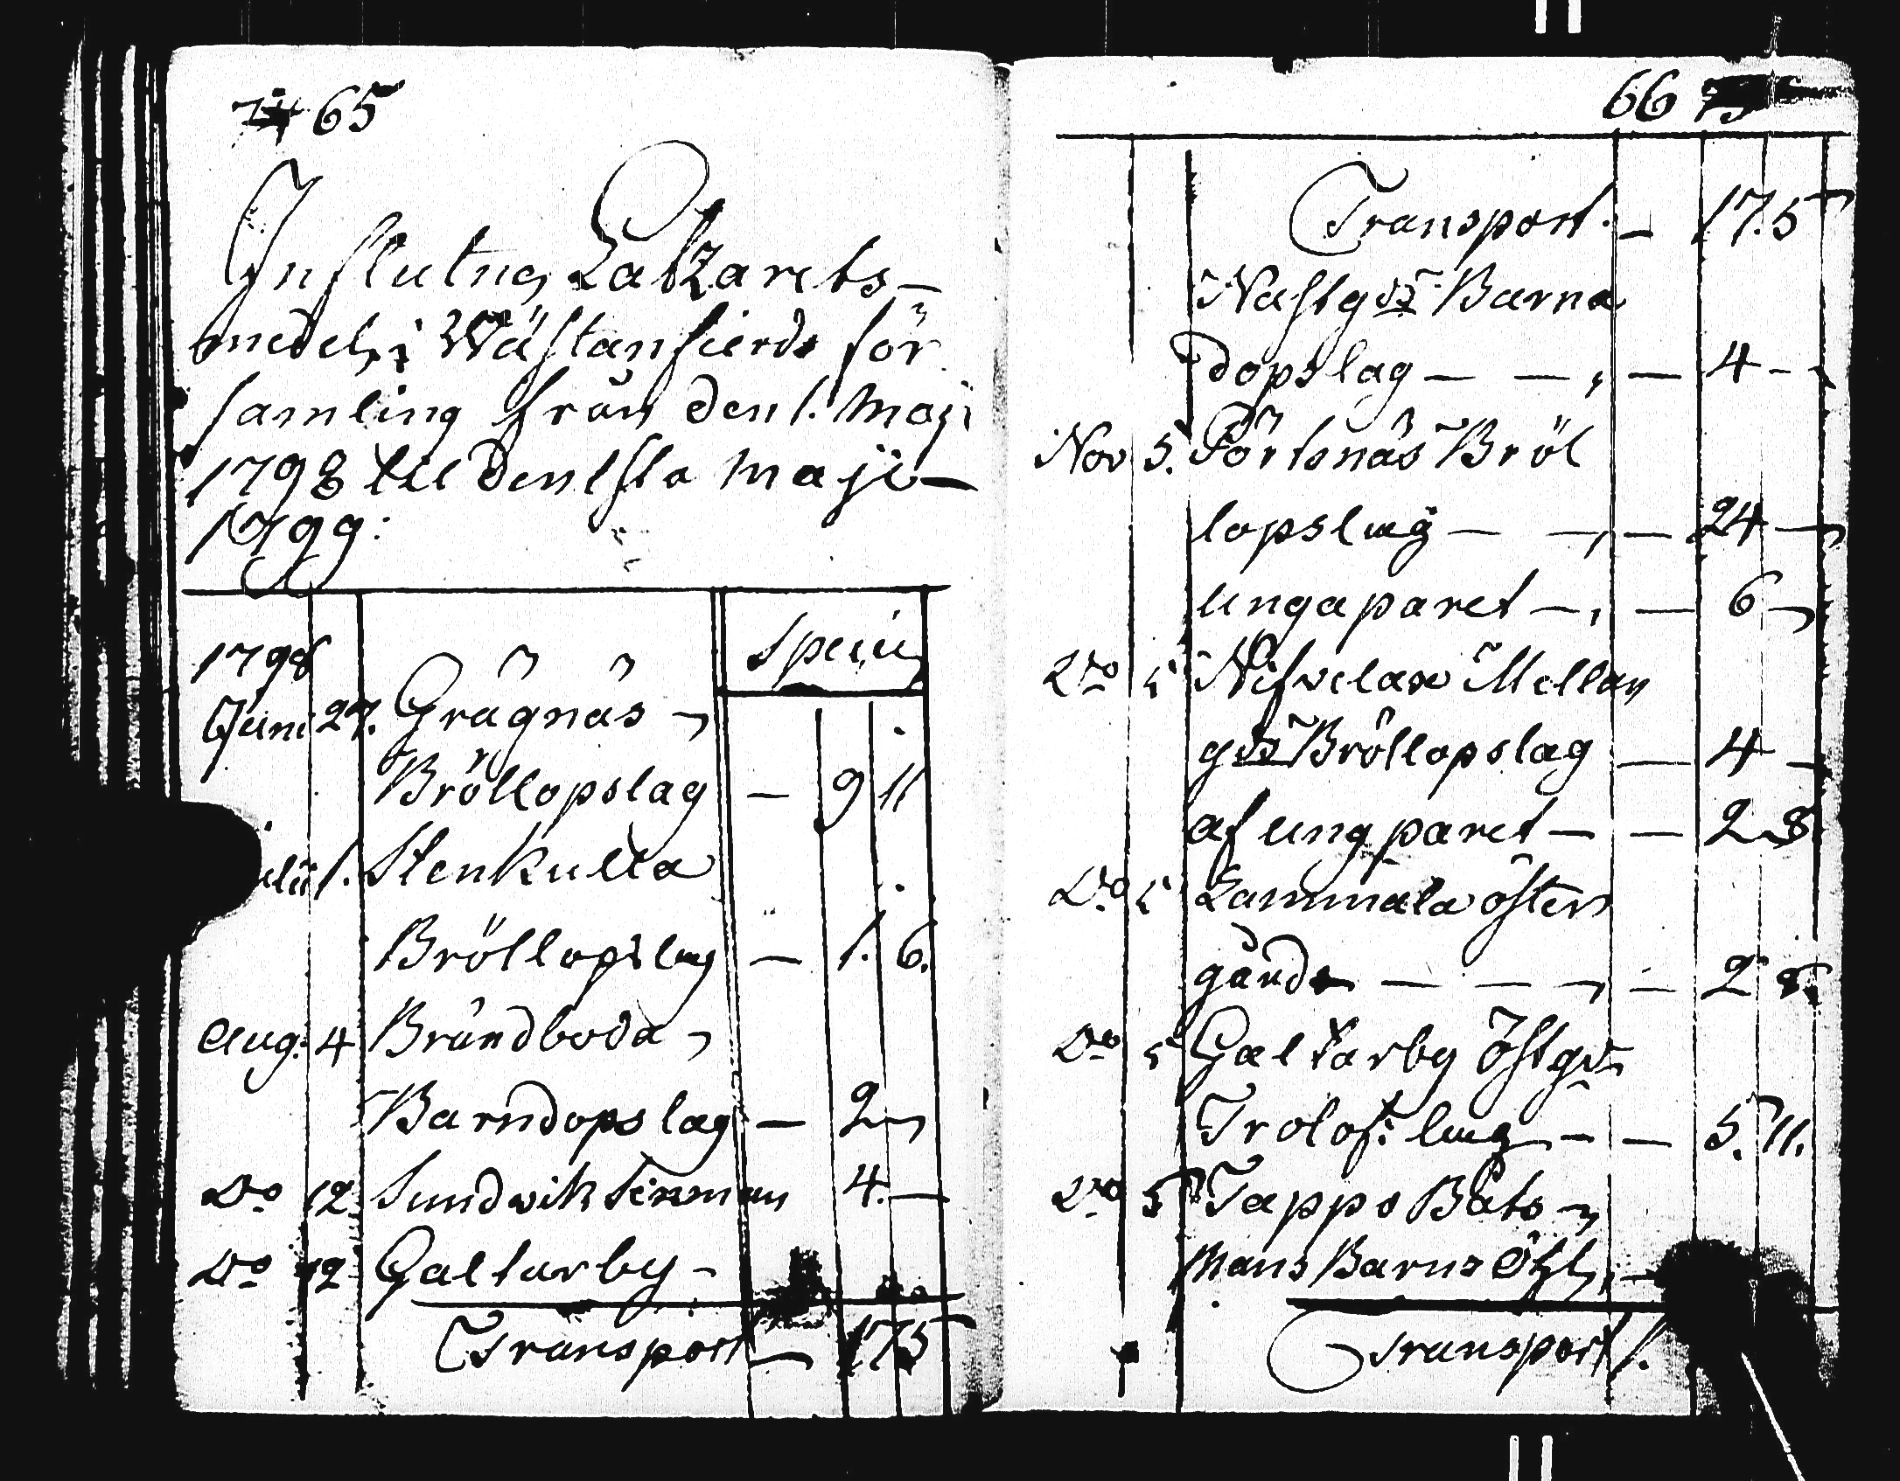 65
Influtne Latzarets-
medel, i Wästanfierds för
samling från den 1. Maji
1798 til den 1sta Maji -
1799:
1798 Speciê
Juni 27. Grågnäs -
Bröllopslag - 9 11
1. Stenkulla
Bröllopslag - 1. 6.
Aug: 4 Brändboda -
Barndopslag - 2 -
Do 12 Sundvik 4. -
Do 12 Galtarby -
Transport - 17 5
66
Transport. - 17. 5
Barna
dopslag - - - 4 - -
Nov 5. Pörtsnäs Bröl
lopslag - - - 24 -
ungaparet - - 6 -
Do 5 Nifvelax Mellan
gds Bröllopslag - 4 -
af ungparet - - 2 8
Do 5 Lammala öster
gårds - - - - 2 8.
Do 5 Galtarby Östgds
Trolof: lag - - 5. 11.
Do 5 Tappo Båts -
mans Barns
Transport 1.